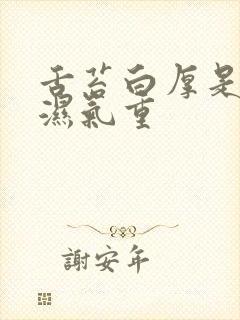 舌苔白厚是
濕氣重
謝安年